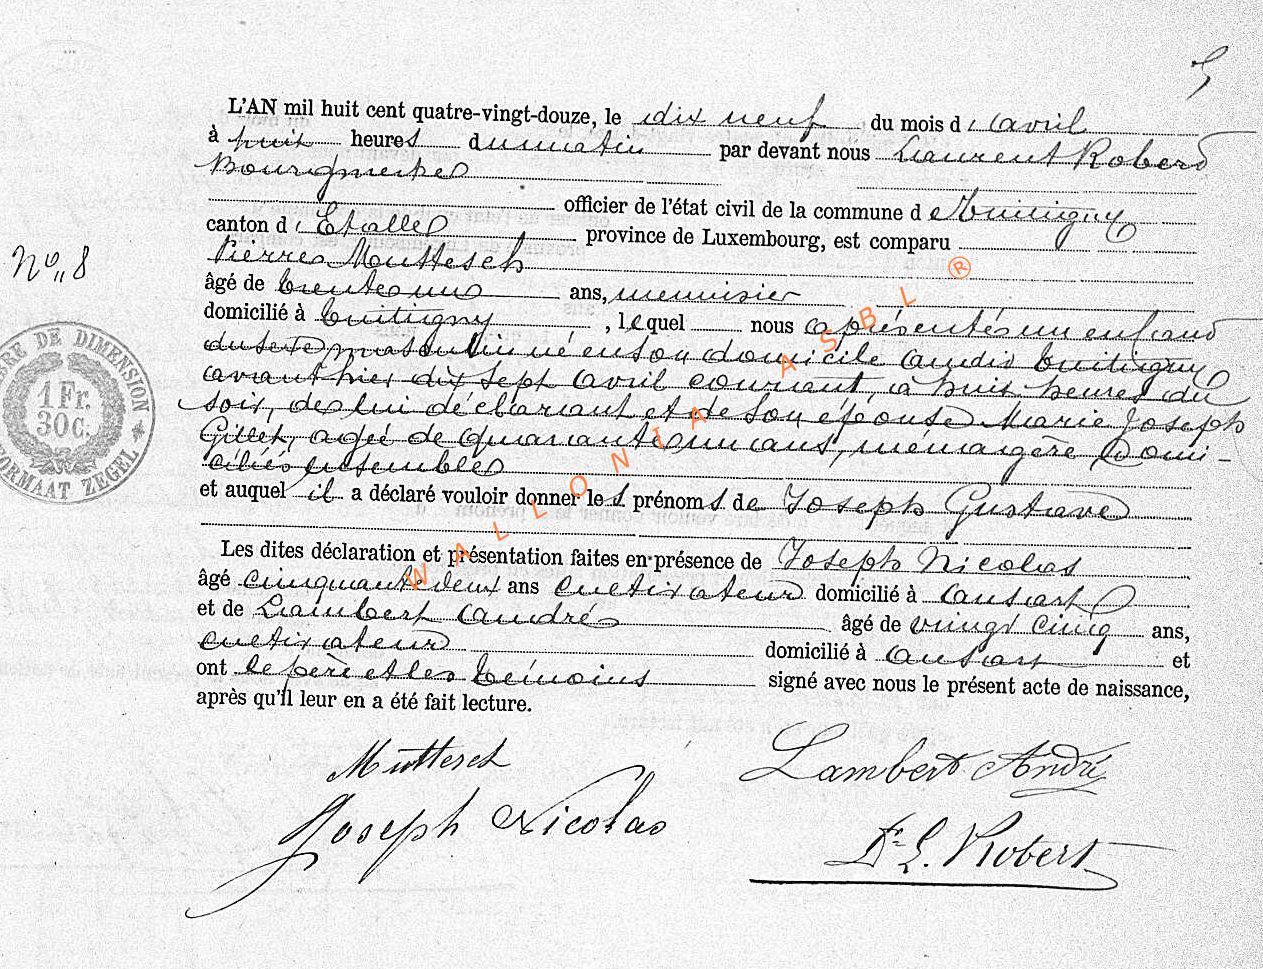 5
L'AN mil huit cent quatre-vingt-douze, le dix neuf du mois d'avril
à huit heures du matin par devant nous Laurent Robert
Bourgmestre
officier de l'état civil de la commune de
canton d'Etalle province de Luxembourg, est comparu
Pierre
No,, 8
âgé de trente un ans, menuisier
domicilié à , lequel nous a présenté un enfant
du sexe masculin né en son domicile audit
avant hier dix sept avril courant, à huit heures du
soir, de lui déclarant et de son épouse Marie Joseph
Gillet, agée de quarante un ans, ménagère domi-
ciliés ensembles
et auquel il a déclaré vouloir donner les prénoms de Joseph Gustave
Les dites déclaration et présentation faites en présence de Joseph Nicolas
âgé cinquante deux ans cultivateur domicilié à Ansart
et de Lambert André âgé de vingt cinq ans,
cultivateur domicilié à Ansart et
ont le père et les témoins signé avec nous le présent acte de naissance,
après qu'il leur en a été fait lecture.
TIMBRE DE DIMENSION
1 Fr.
30 c.
FORMAAT ZEGEL
WALLONIA ASBL ®
Lambert André
Joseph Nicolas
Dr L. Robert